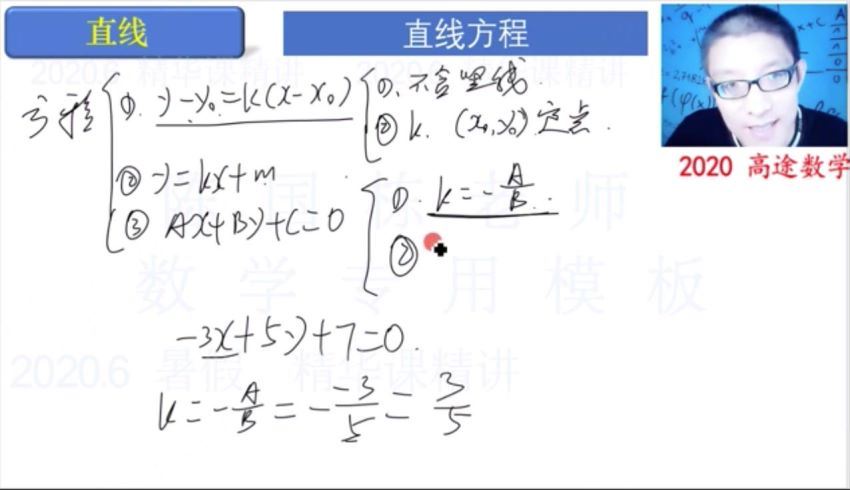 直线
直线方程
2020.6 精华课精讲
方程
①. y-y₀=k(x-x₀)
①. 不含竖线.
② k. (x₀,y₀)定点.
② y=kx+m
③ Ax+By+C=0
①. k=-A/B..
②
2020 高途数学
国栋老师
数学专用模板
-3x+5y+7=0.
2020.6 暑假 精华课精讲
k=-A/B=--3/5=3/5